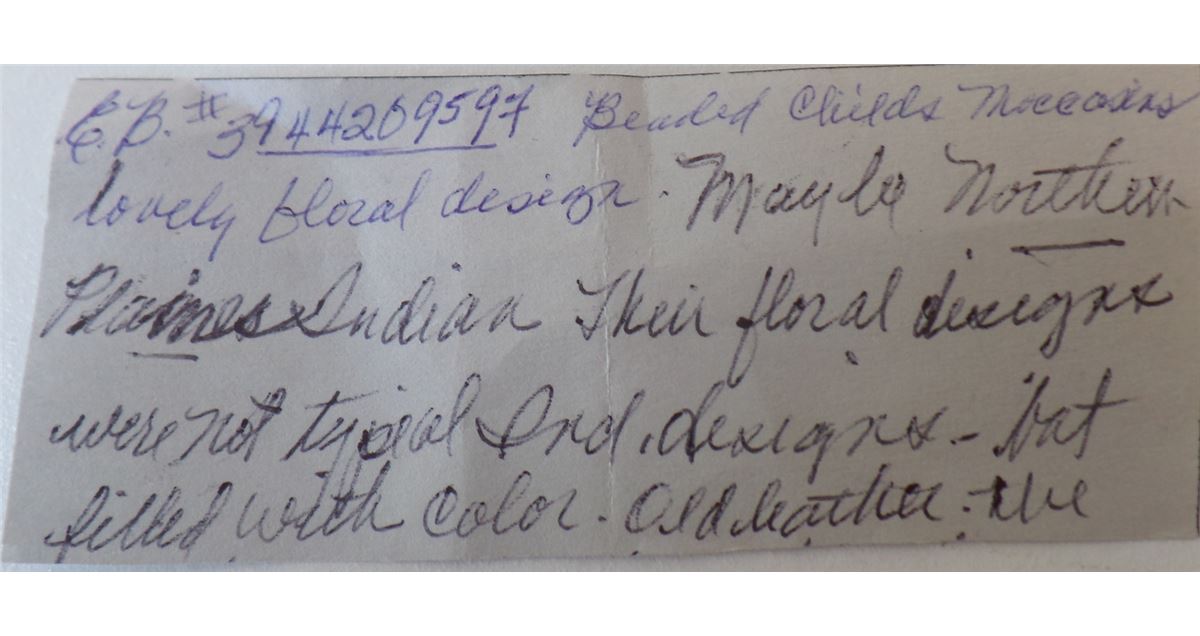 E.B. #3944209597 Beaded Childs Moccasins
lovely floral design. Maybe Northern
Plaines Indian Their floral designs
were not typical Ind. designs - but
filled with color. Old leather. the